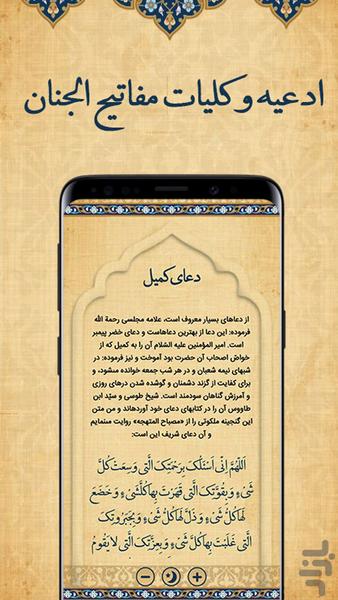 ادعیه و کلیات مفاتیح الجنان
دعای کمیل
از دعاهای بسیار معروف است، علامه مجلسی رحمة الله
فرموده: این دعا از بهترین دعاهاست و دعای خضر پیمبر
است. امیر المؤمنین علیه السّلام آن را به کمیل که از
خواض اصحاب آن حضرت بود آموخت و نیز فرموده: در
شبهای نیمه شعبان و در هر شب جمعه خوانده میشود، و
برای کفایت از گزند دشمنان و گوشده شدن درهای روزی
و آمرزش گناهان سودمند است. شیخ طوسی و سیّد ابن
طاووس آن را در کتابهای دعای خود آوردهاند و من متن
این گنجینه ملکوتی را از «مصباح المتهجه» روایت مینمایم
و آن دعای شریف این است:
اَللّٰهُمَّ اِنّی اَسْئَلُكَ بِرَحْمَتِكَ الَّتی وَسِعَتْ كُلَّ
شَیْءٍ وَ بِقُوَّتِكَ الَّتی قَهَرْتَ بِها كُلَّشَیْءٍ وَ خَضَعَ
لَها كُلُّ شَیْءٍ وَ ذَلَّ لَها كُلُّ شَیْءٍ وَ بِجَبَرُوتِكَ
الَّتی غَلَبْتَ بِها كُلَّ شَیْءٍ وَ بِعِزَّتِكَ الَّتی لا یَقُومُ
بازار